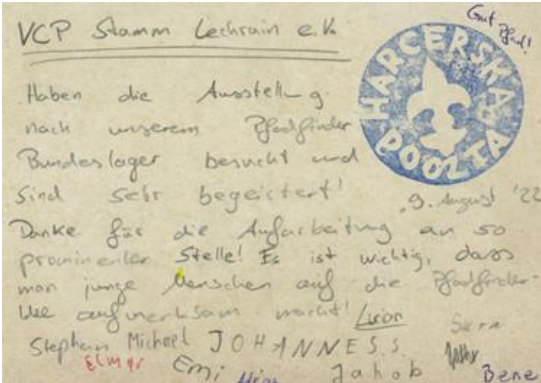 VCP Stamm Lechrain e.V.
Gut Pfad!
HARCERSKA POCZTA
Haben die Ausstellung
nach unserem Pfadfinder
Bundeslager besucht und
sind sehr begeistert!
9. August '22
Danke für die Aufarbeitung an so
prominenter Stelle! Es ist wichtig, dass
man junge Menschen auf die Pfadfinder-
aufmerksam macht!
Stephan Michael JOHANNES S.
Elmar Emi Jakob Bene